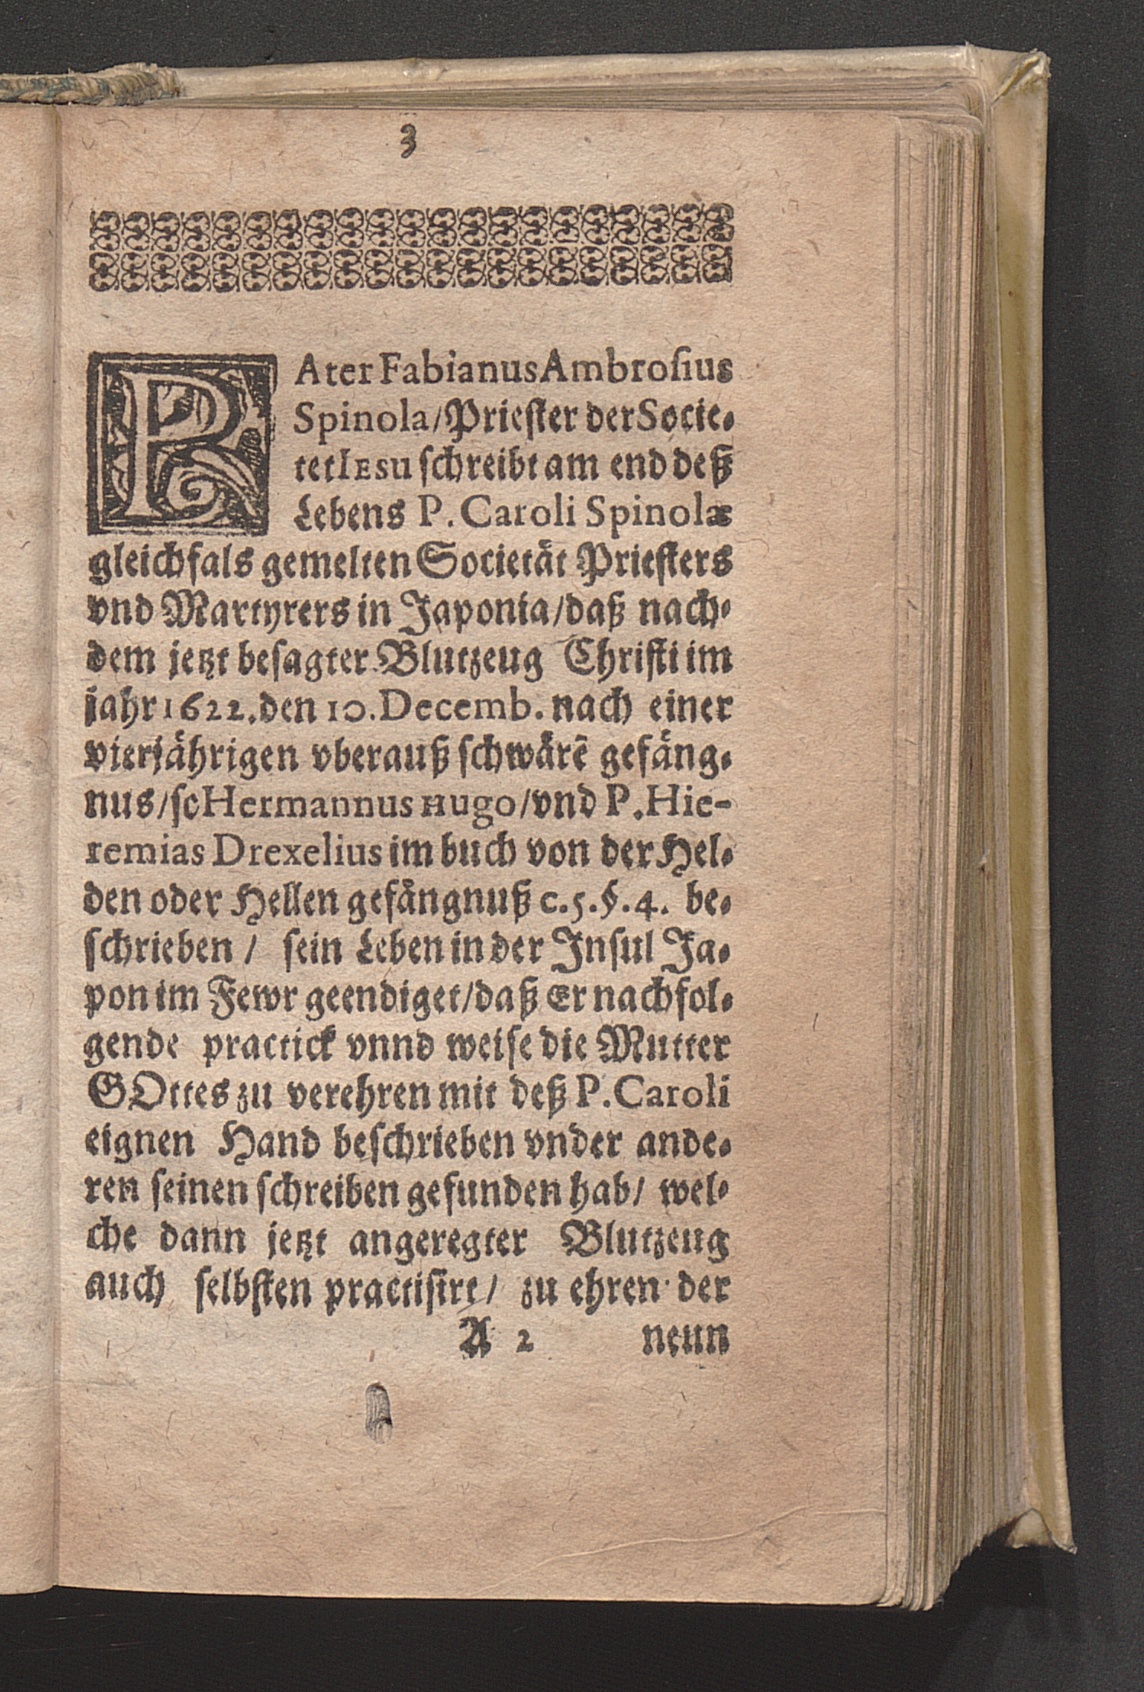 3
PAter Fabianus Ambrosius
Spinola/Priester der Socie-
tet IESU schreibt am end deß
Lebens P. Caroli Spinolæ
gleichfals gemelten Societät Priesters
vnd Martyrers in Japonia/daß nach-
dem jetzt besagter Blutzeug Christi im
jahr 1622. den 10. Decemb. nach einer
vierjährigen vberauß schwärẽ gefäng-
nus/so Hermannus Hugo/vnd P. Hie-
remias Drexelius im buch von der Hel-
den oder Hellen gefängnuß c. 5. §. 4. be-
schrieben / sein Leben in der Insul Ja-
pon im Fewr geendiget/daß Er nachfol-
gende practick vnnd weise die Mutter
GOttes zu verehren mit deß P. Caroli
eignen Hand beschrieben vnder ande-
ren seinen schreiben gefunden hab/ wel-
che dann jetzt angeregter Blutzeug
auch selbsten practisirt/ zu ehren der
A 2 neun